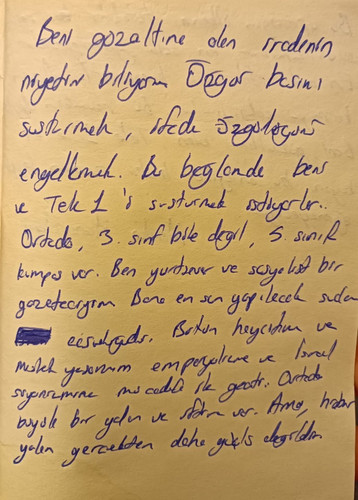 Beni gözaltına alan iradenin
niyetini biliyorum Özgür basını
susturmak, ifade özgürlüğünü
engellemek. Bu bağlamda beni
ve Tele 1'i susturmak istiyorlar.
Ortada, 3. sınıf bile değil, 5. sınıf
kumpas var. Ben yurtsever ve sosyalist bir
gazeteciyim Bana en son yapılacak suçlama
casusluktur. Bütün hayatım ve
meslek yaşamım emperyalizme ve İsrail
siyonizmine mücadele ile geçti. Ortada
büyük bir yalan ve iftira var. Ama, hiçbir
yalan gerçekten daha güçlü değildir.